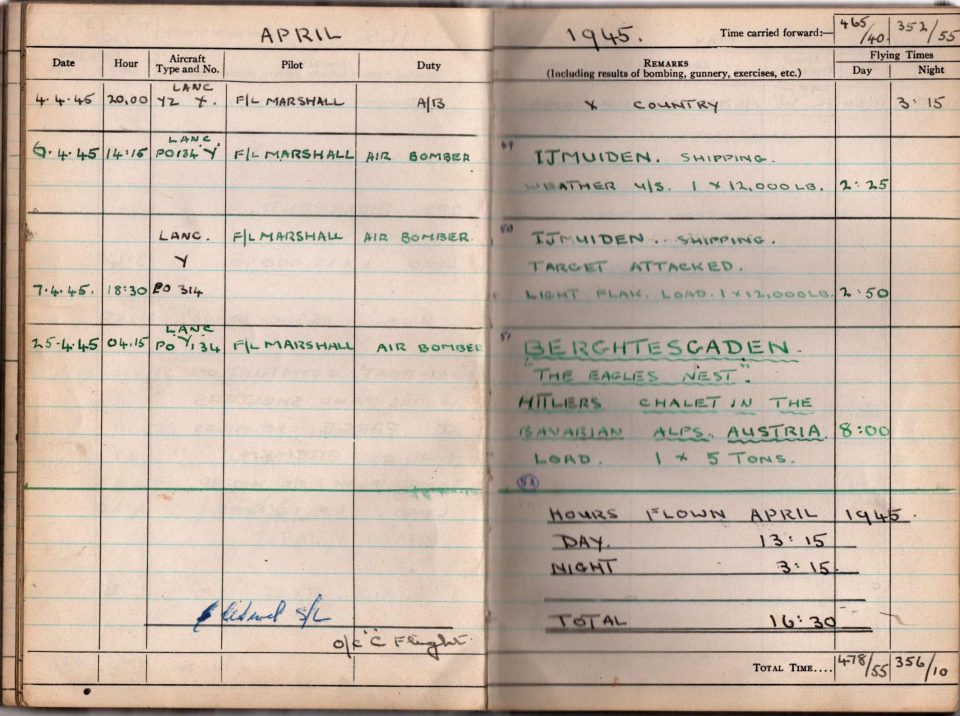 APRIL
1945.
Time carried forward:— 465/40 352/55
Date Hour Aircraft Type and No. Pilot Duty
REMARKS (Including results of bombing, gunnery, exercises, etc.)
Flying Times
Day Night
LANC
4.4.45 20,00 YZ Y. F/L MARSHALL A/B X COUNTRY 3:15
LANC.
6.4.45 14:15 PO134 "Y" F/L MARSHALL AIR BOMBER 49 IJMUIDEN. SHIPPING.
WEATHER U/S. 1 X 12,000 LB. 2:25
LANC. F/L MARSHALL AIR BOMBER. 50 IJMUIDEN.. SHIPPING.
Y TARGET ATTACKED.
7.4.45. 18:30 PO 314 LIGHT FLAK. LOAD. 1 X 12,000 LB. 2:50
LANC
25.4.45 04.15 PO "Y" 134 F/L MARSHALL AIR BOMBER 51 BERGHTESGADEN.
"THE EAGLES NEST".
HITLERS CHALET IN THE
BAVARIAN ALPS. AUSTRIA. 8:00
LOAD. 1 X 5 TONS.
HOURS FLOWN APRIL 1945.
DAY. 13:15
NIGHT 3:15.
TOTAL 16:30
S/L
O/C "C" Flight.
TOTAL TIME.... 478/55 356/10